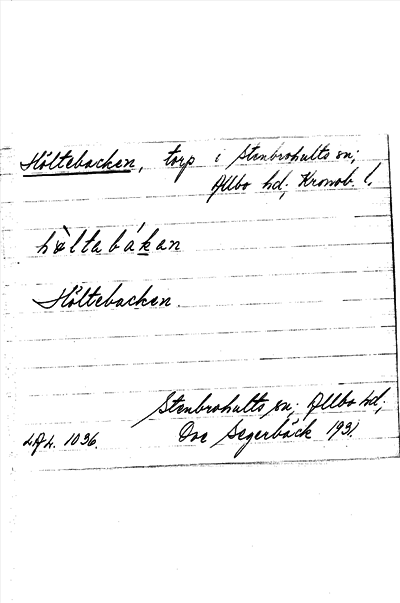 Höltebacken, torp i Stenbrohults sn;
Allbo hd; Kronob. l.
hæ̀ltabákan
Höltebacken.
Stenbrohults sn; Allbo hd;
LAL. 1036. Ove Segerbäck 1931